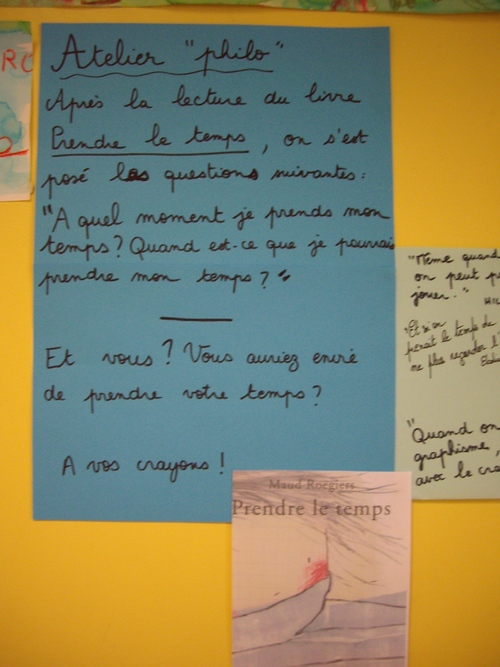 Atelier "philo"
Après la lecture du livre
Prendre le temps, on s'est
posé les questions suivantes :
"A quel moment je prends mon
temps ? Quand est-ce que je pourrais
prendre mon temps ? "
Et vous ? Vous auriez envie
de prendre votre temps ?
A vos crayons !
Maud Roegiers
Prendre le temps
"Même quand
on peut
jouer."
"Et si on
prenait le temps de
ne plus regarder l'
"Quand on
graphisme,
avec le